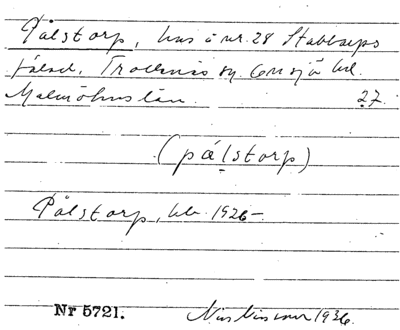 Pålstorp, hus å nr. 28 Stabbarps
fälad, Trollenäs sn. Onsjö hd.
Malmöhus län. 27.
(pålstorp)
Pålstorp, kb. 1926–
Nr 5721. 1936.